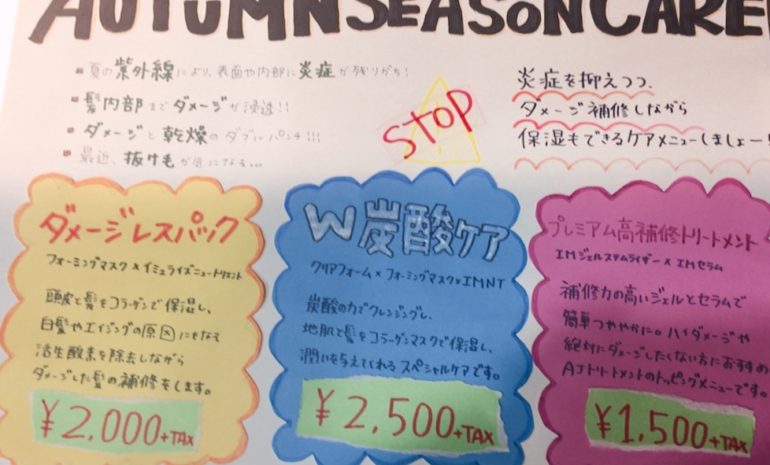 AUTUMN SEASON CARE!
■ 夏の紫外線により、表面や内部に炎症が残りがち!
■ 髪内部までダメージが浸透!!
■ ダメージと乾燥のダブルパンチ!!!
■ 最近、抜け毛が気になる...
STOP
炎症を抑えつつ、
ダメージ補修しながら
保湿もできるケアメニューしましょー!!
ダメージレスパック
フォーミングマスク×イミュライズニュートリメント
頭皮と髪をコラーゲンで保湿し、
白髪やエイジングの原因にもなる
活性酸素を除去しながら
ダメージした髪の補修をします。
¥2,000+TAX
W炭酸ケア
クリアフォーム×フォーミングマスク×IMNT
炭酸の力でクレンジングし、
地肌と髪をコラーゲンマスクで保湿し、
潤いを与えてくれるスペシャルケアです。
¥2,500+TAX
プレミアム高補修トリートメント
IMジェルスタムライザー×IMセラム
補修力の高いジェルとセラムで
簡単つややかに。ハイダメージや
絶対にダメージしたくない方におすすめ
AJトリートメントのトッピングメニューです。
¥1,500+TAX